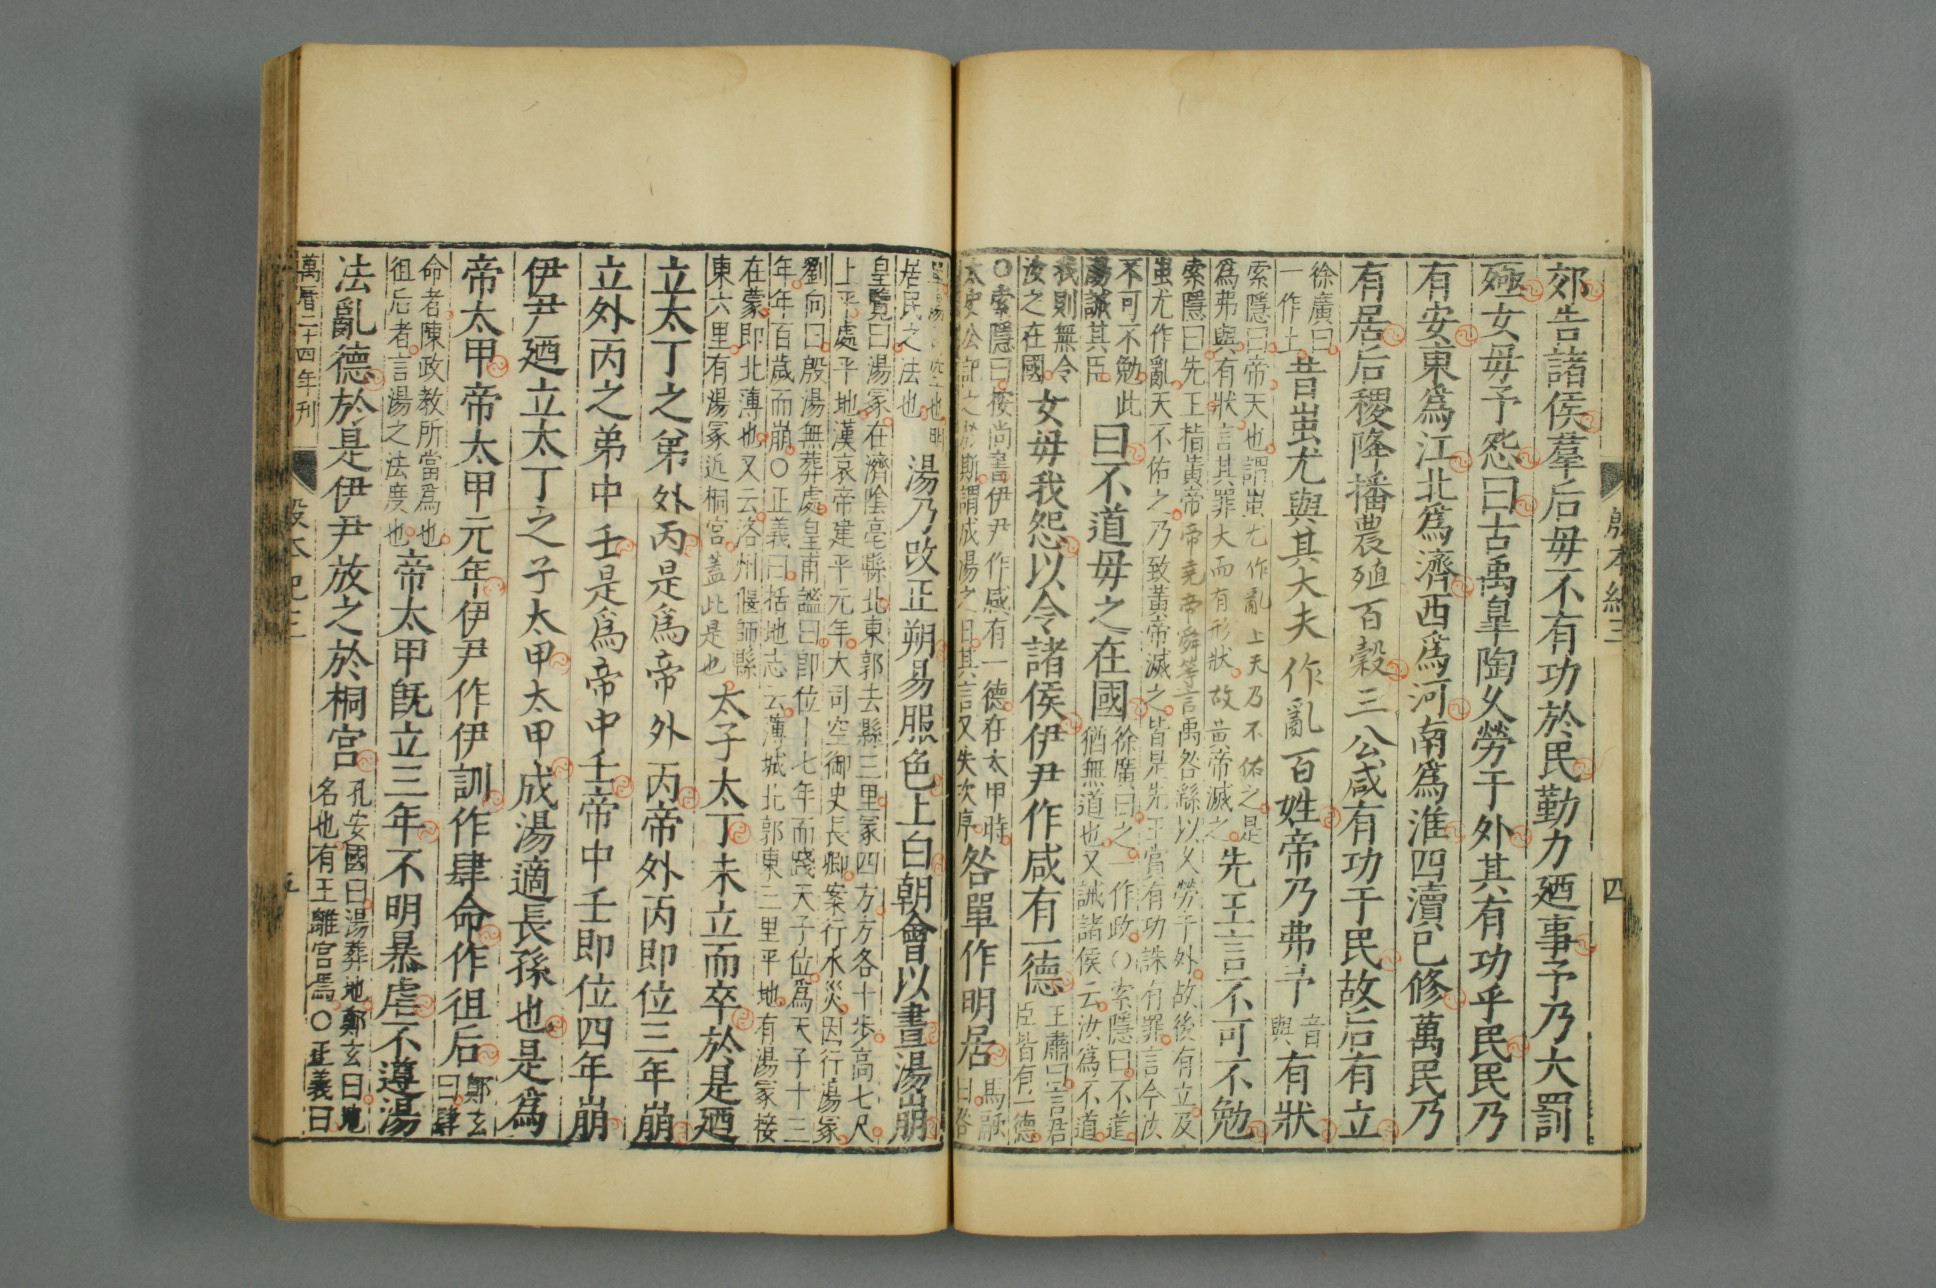 殷本紀三
四
郊告諸侯羣后毋不有功於民勤力廼事予乃大罰
殛女毋予怨曰古禹臯陶乆勞于外其有功乎民民乃
有安東爲江北爲濟西爲河南爲淮四瀆已修萬民乃
有居后稷降播農殖百穀三公咸有功于民故后有立
徐廣曰
一作土
昔蚩尤與其大夫作亂百姓帝乃弗予
音
與
有狀
索隱曰帝天也謂蚩尤作亂上天乃不佑之是
爲弗與有狀言其罪大而有形狀故黄帝滅之
先王言不可不勉
索隱曰先王指黄帝帝堯帝舜等言禹咎繇以乆勞于外故後有立及
蚩尤作亂天不佑之乃致黄帝滅之皆是先王賞有功誅有罪言今汝
不可不勉此
湯誡其臣
曰不道毋之在國
徐廣曰之一作政○索隱曰不道
猶無道也又誡諸侯云汝爲不道
我則無令
汝之在國
女毋我怨以令諸侯伊尹作咸有一德
王肅曰言居
臣皆有一德
○索隱曰按尚書伊尹作咸有一德在太甲時
太史公記之於斯謂成湯之日其言又失次序
咎單作明居
馬融
曰咎
居民之法也
湯乃改正朔易服色上白朝會以晝湯崩
皇覽曰湯冢在濟陰亳縣北東郭去縣三里冢四方方各十步高七尺
上平處平地漢哀帝建平元年大司空御史長卿案行水災因行湯冢
劉向曰殷湯無葬處皇甫謐曰卽位十七年而踐天子位爲天子十三
年年百歲而崩○正義曰括地志云薄城北郭東三里平地有湯冢按
在蒙即北薄也又云洛州偃師縣
東六里有湯冢近桐宮蓋此是也
太子太丁未立而卒於是廼
立太丁之弟外丙是爲帝外丙帝外丙即位三年崩
立外丙之弟中壬是爲帝中壬帝中壬即位四年崩
伊尹廼立太丁之子太甲太甲成湯適長孫也是爲
帝太甲帝太甲元年伊尹作伊訓作肆命作徂后
鄭玄
曰肆
命者陳政教所當爲也
徂后者言湯之法度也
帝太甲旣立三年不明暴虐不遵湯
法亂德於是伊尹放之於桐宮
孔安國曰湯葬地鄭玄曰地
名也有王離宮焉○正義曰
萬曆二十四年刊
殷本紀三
五